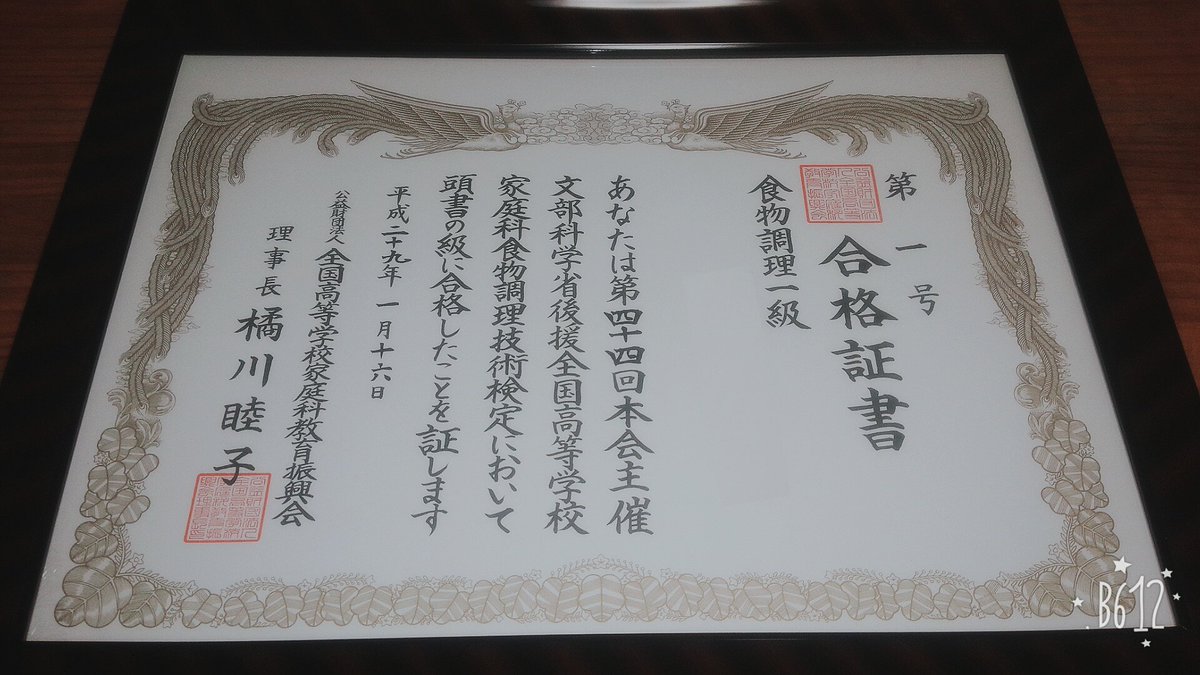 第一号
合格証書
食物調理一級
あなたは第四十四回本会主催
文部科学省後援全国高等学校
家庭科食物調理技術検定において
頭書の級に合格したことを証します
平成二十九年一月十六日
公益財団法人 全国高等学校家庭科教育振興会
理事長 橘川睦子
B612